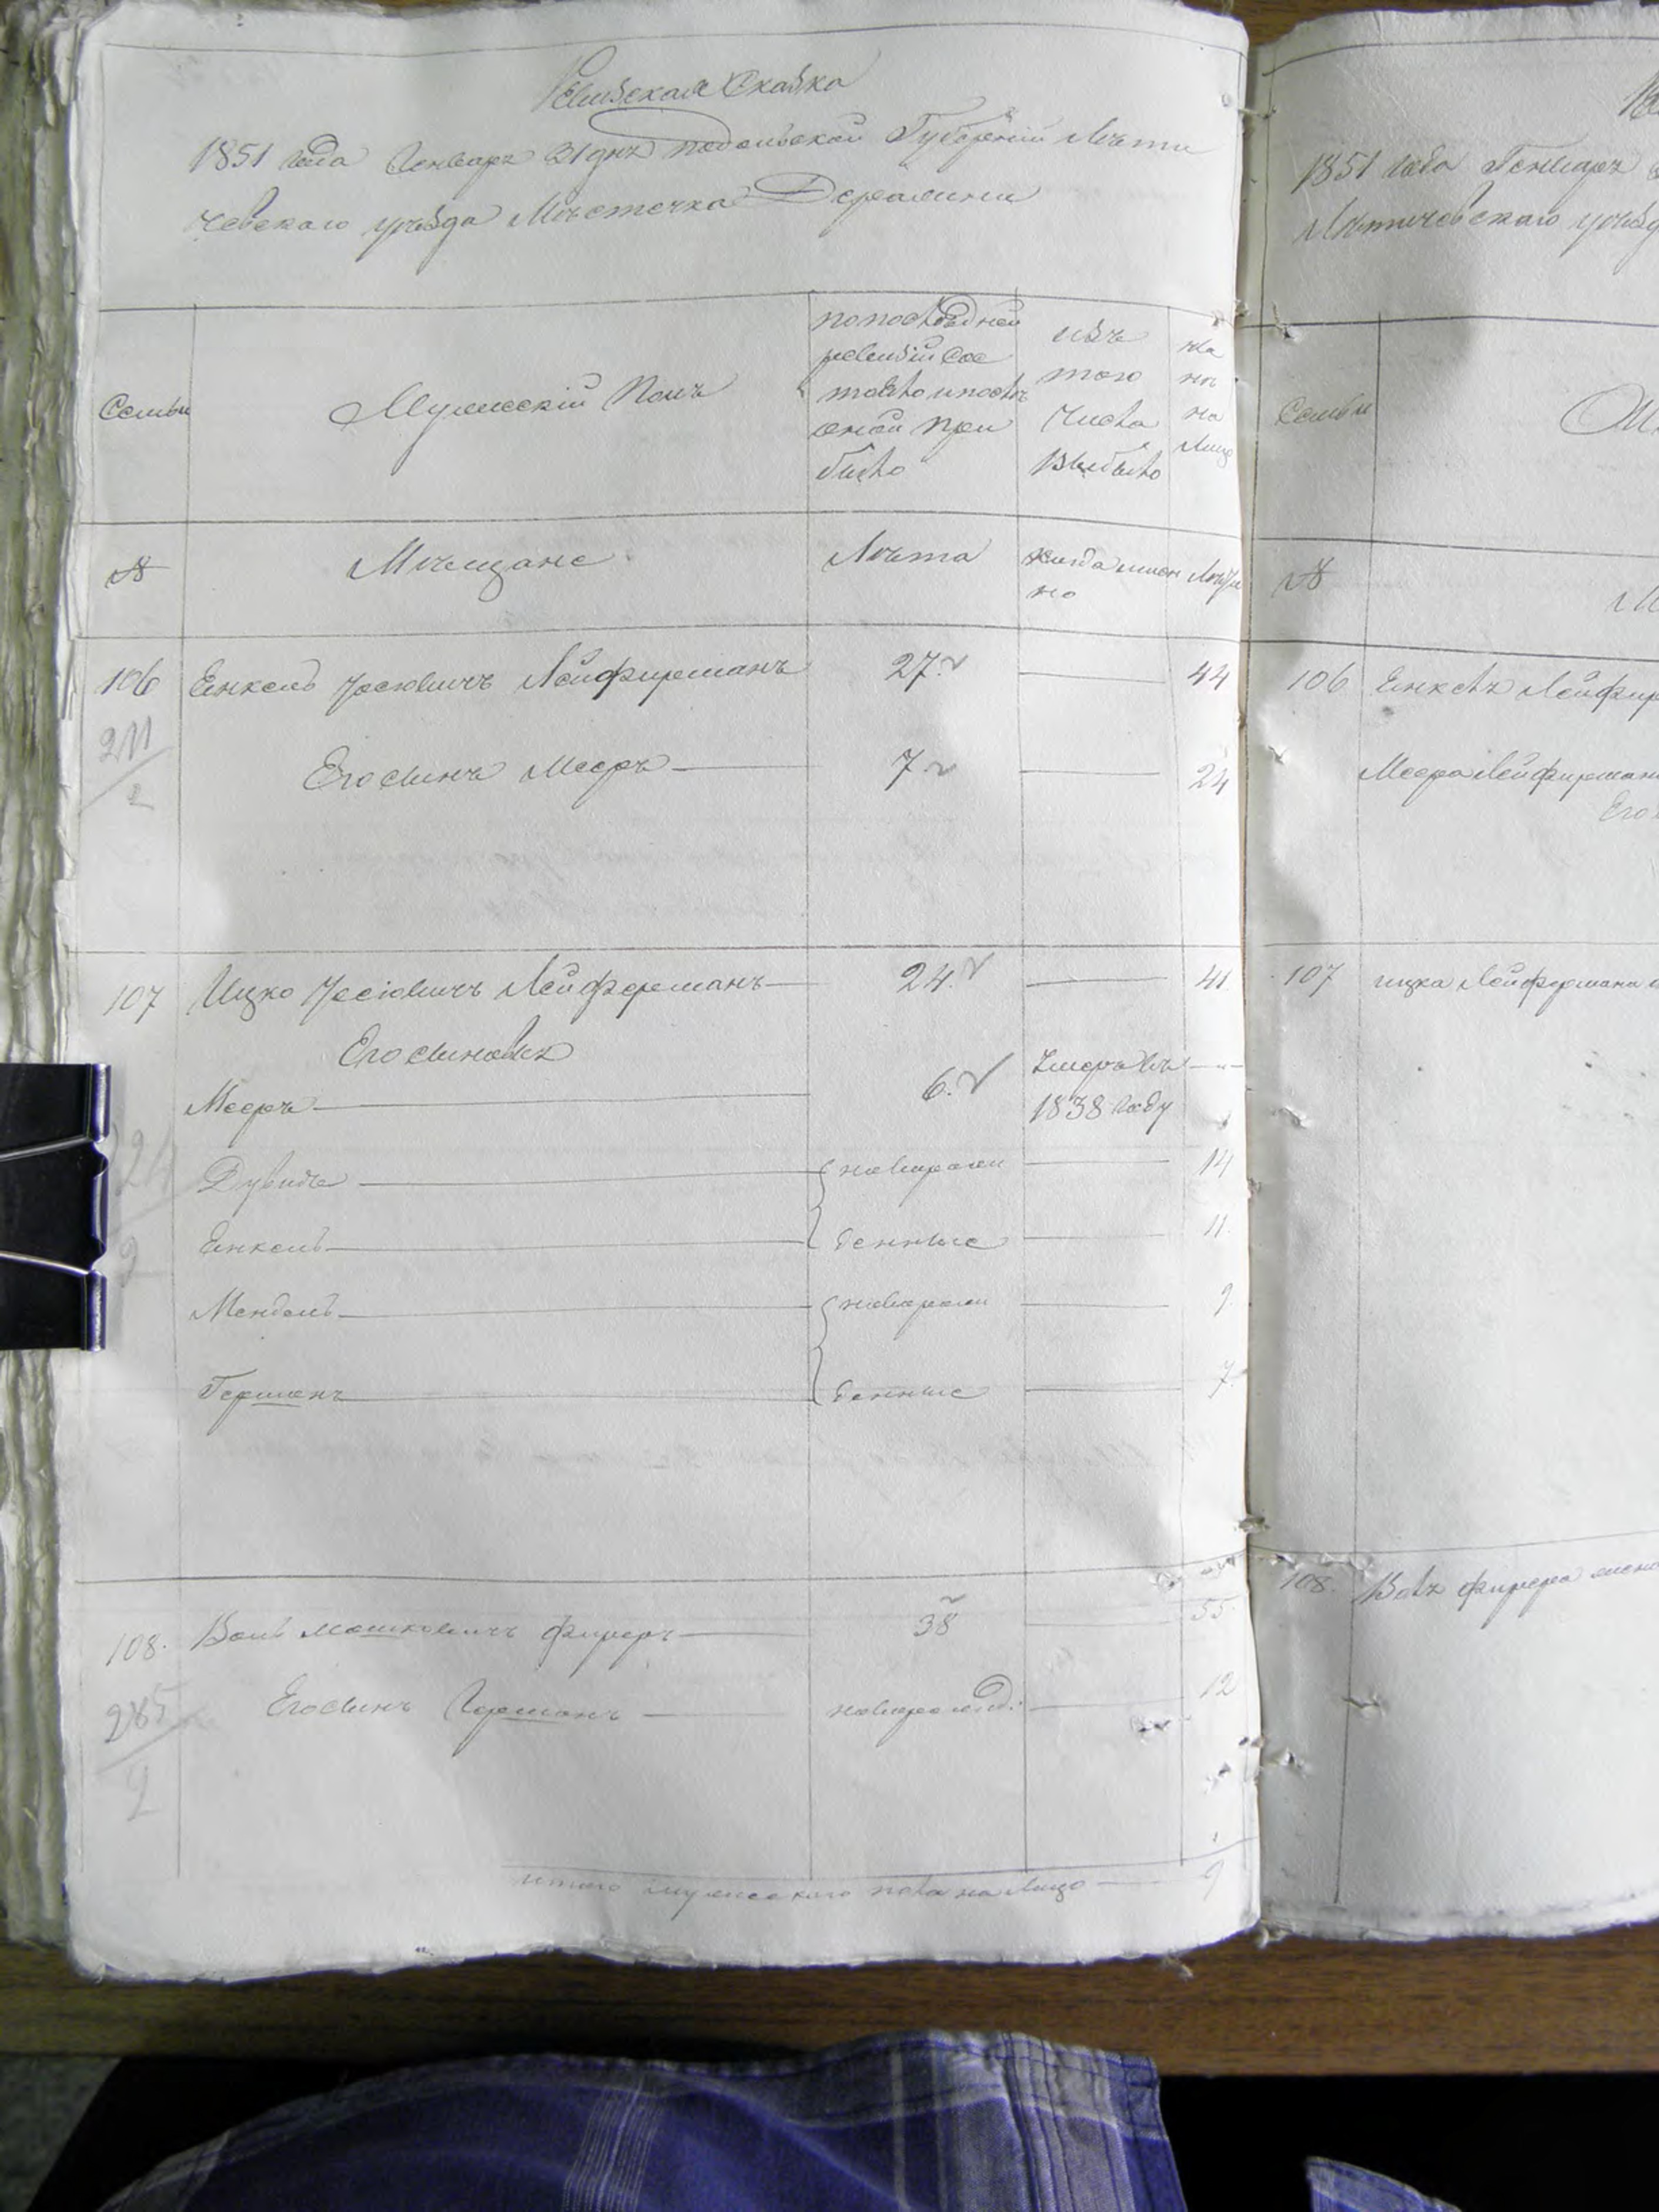 Ревизская Сказка
1851 года Генваря 31 дня Подольской Губернии Лѣти
чевскаго уѣзда Мѣстечка Деражни
Семьи
Мужескій Полъ
по последней
ревизіи сос
тояло и послѣ
оной при
было
изъ
того
числа
выбыло
ны
нѣ
на
лицо
№
Мѣщане
Лѣта
когда имен
но
Лѣта
106 Енкель Иосіовичъ Лейфирманъ 27. — 44
211
2
Его сынъ Мееръ — 7 — 24
107 Ицко Иосіовичъ Лейферманъ — 24. — 41
Его сыновья
Мееръ — 6. Умеръ въ —
1838 году
Дувидъ — новорож — 14
Енкель — денные — 11.
Мендель — новорож — 9.
Гершонъ — денные — 7.
108. Воль Мошковичъ Фиреръ — 38 — 55.
285
2
Его сынъ Гершонъ — новорожд: — 12
итого мужескаго пола на лицо — 9
1851 года Генваря
Лѣтичевскаго уѣзд
Семьи
№
106 Енкеля Лейфир
Меера Лейфирман
Его
107 Ицка Лейфермана
108. Воля Фирера жена